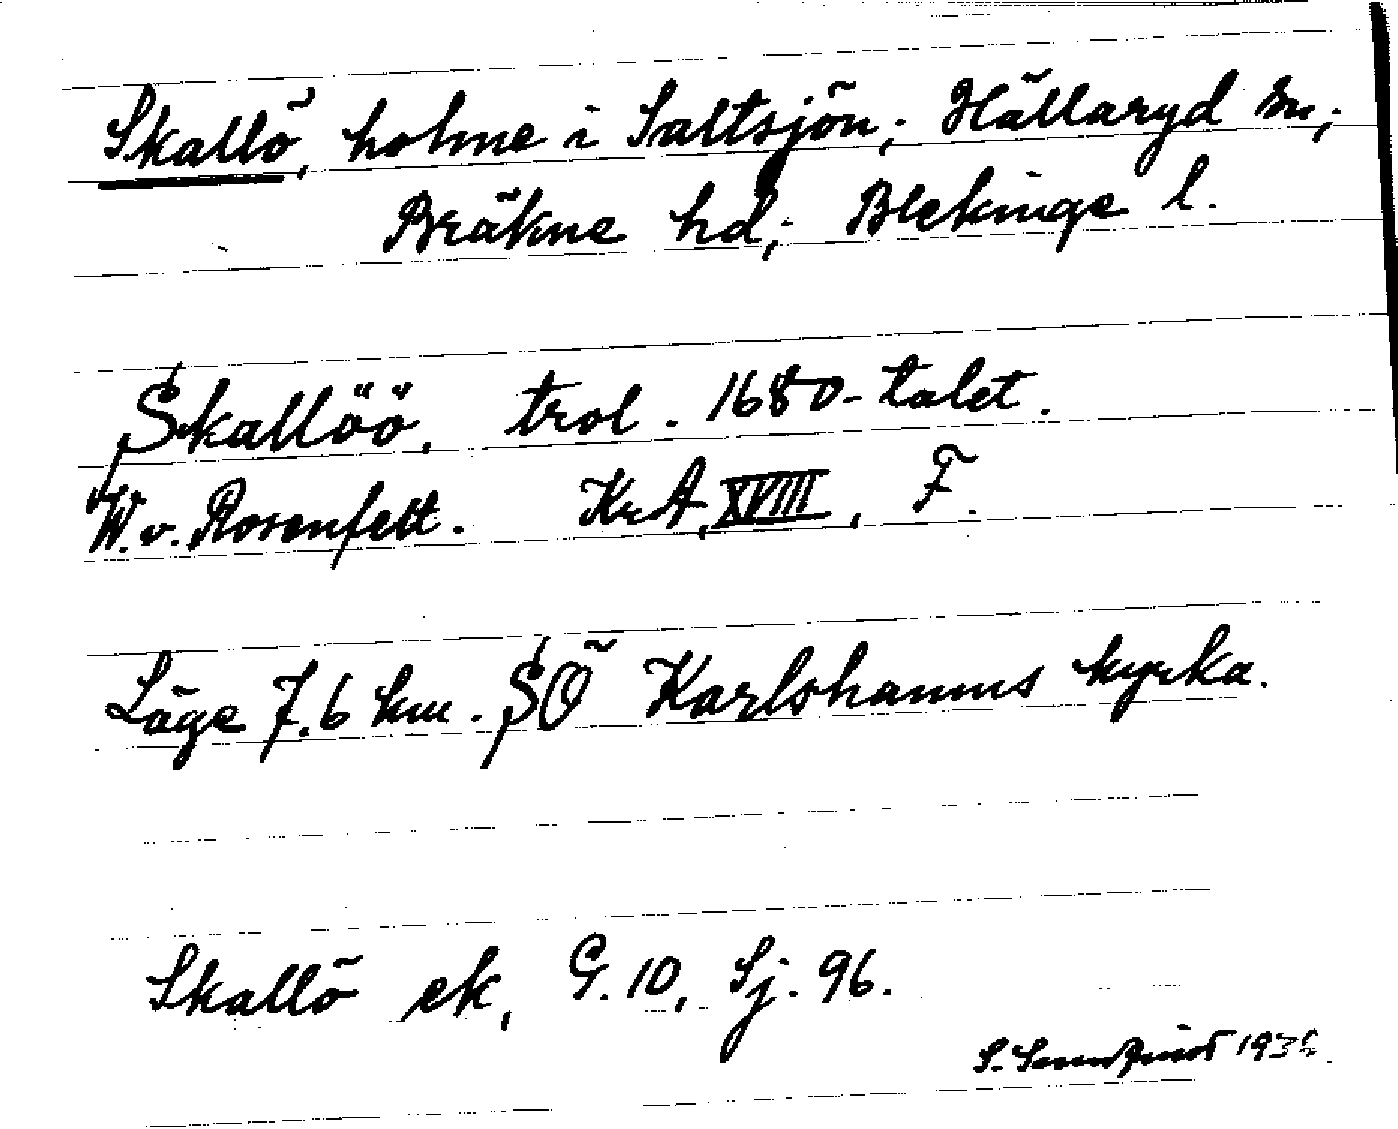 Skallö, holme i Saltsjön; Hällaryd sn;
Bräkne hd; Blekinge l.
Skallöö, trol. 1680-talet.
W. v. Rosenfelt. KrA, XVIII, F.
Läge 7.6 km. SÖ Karlshamns kyrka.
Skallö ek, G. 10, Sj. 96.
S.